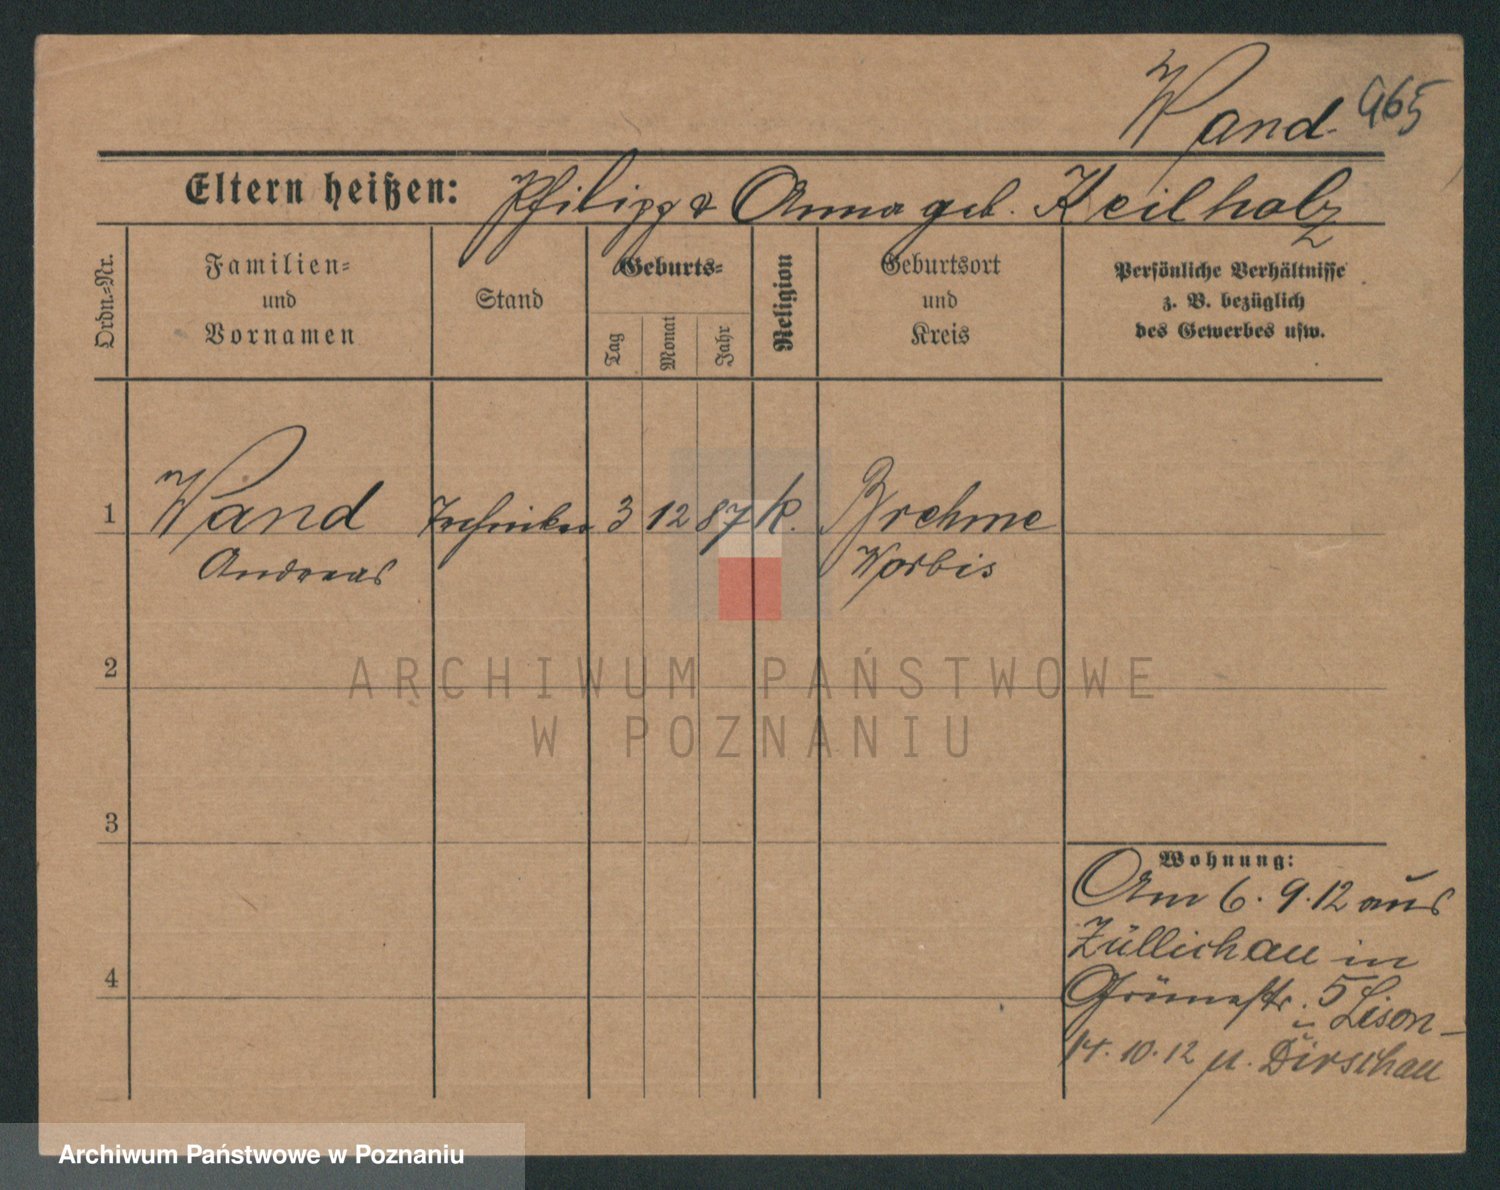 Wand. 965
Eltern heißen: Philipp & Anna geb. Keilholz
Ordn.-Nr.
Familien=
und
Vornamen
Stand
Geburts=
Tag
Monat
Jahr
Religion
Geburtsort
und
Kreis
Persönliche Verhältnisse
z. B. bezüglich
des Gewerbes usw.
1 Wand Techniker 3 12 87 k. Brehme
Andreas Worbis
2
3
4
Wohnung:
Am 6. 9. 12 aus
Züllichau in
Grünestr. 5 Lison-
14. 10. 12 n. Dirschau
ARCHIWUM PAŃSTWOWE
W POZNANIU
Archiwum Państwowe w Poznaniu